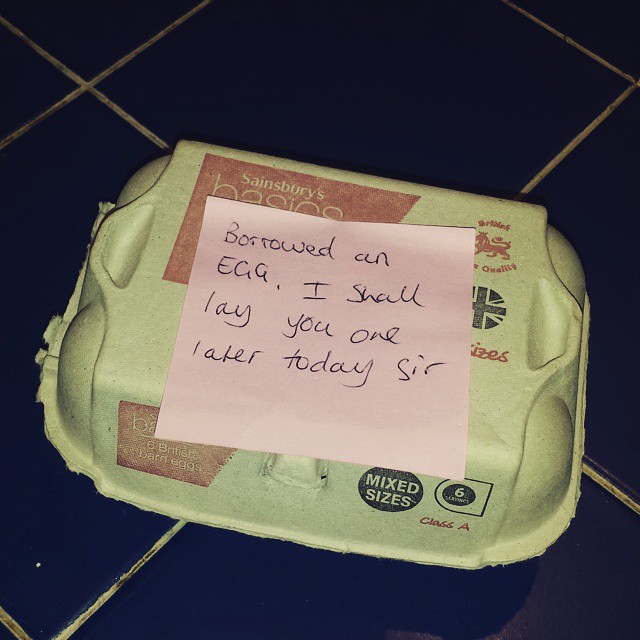 Sainsbury's
basics
British
Quality
Borrowed an
EGG. I shall
lay you one
later today sir
sizes
6 British
barn eggs
MIXED
SIZES
6
Class A